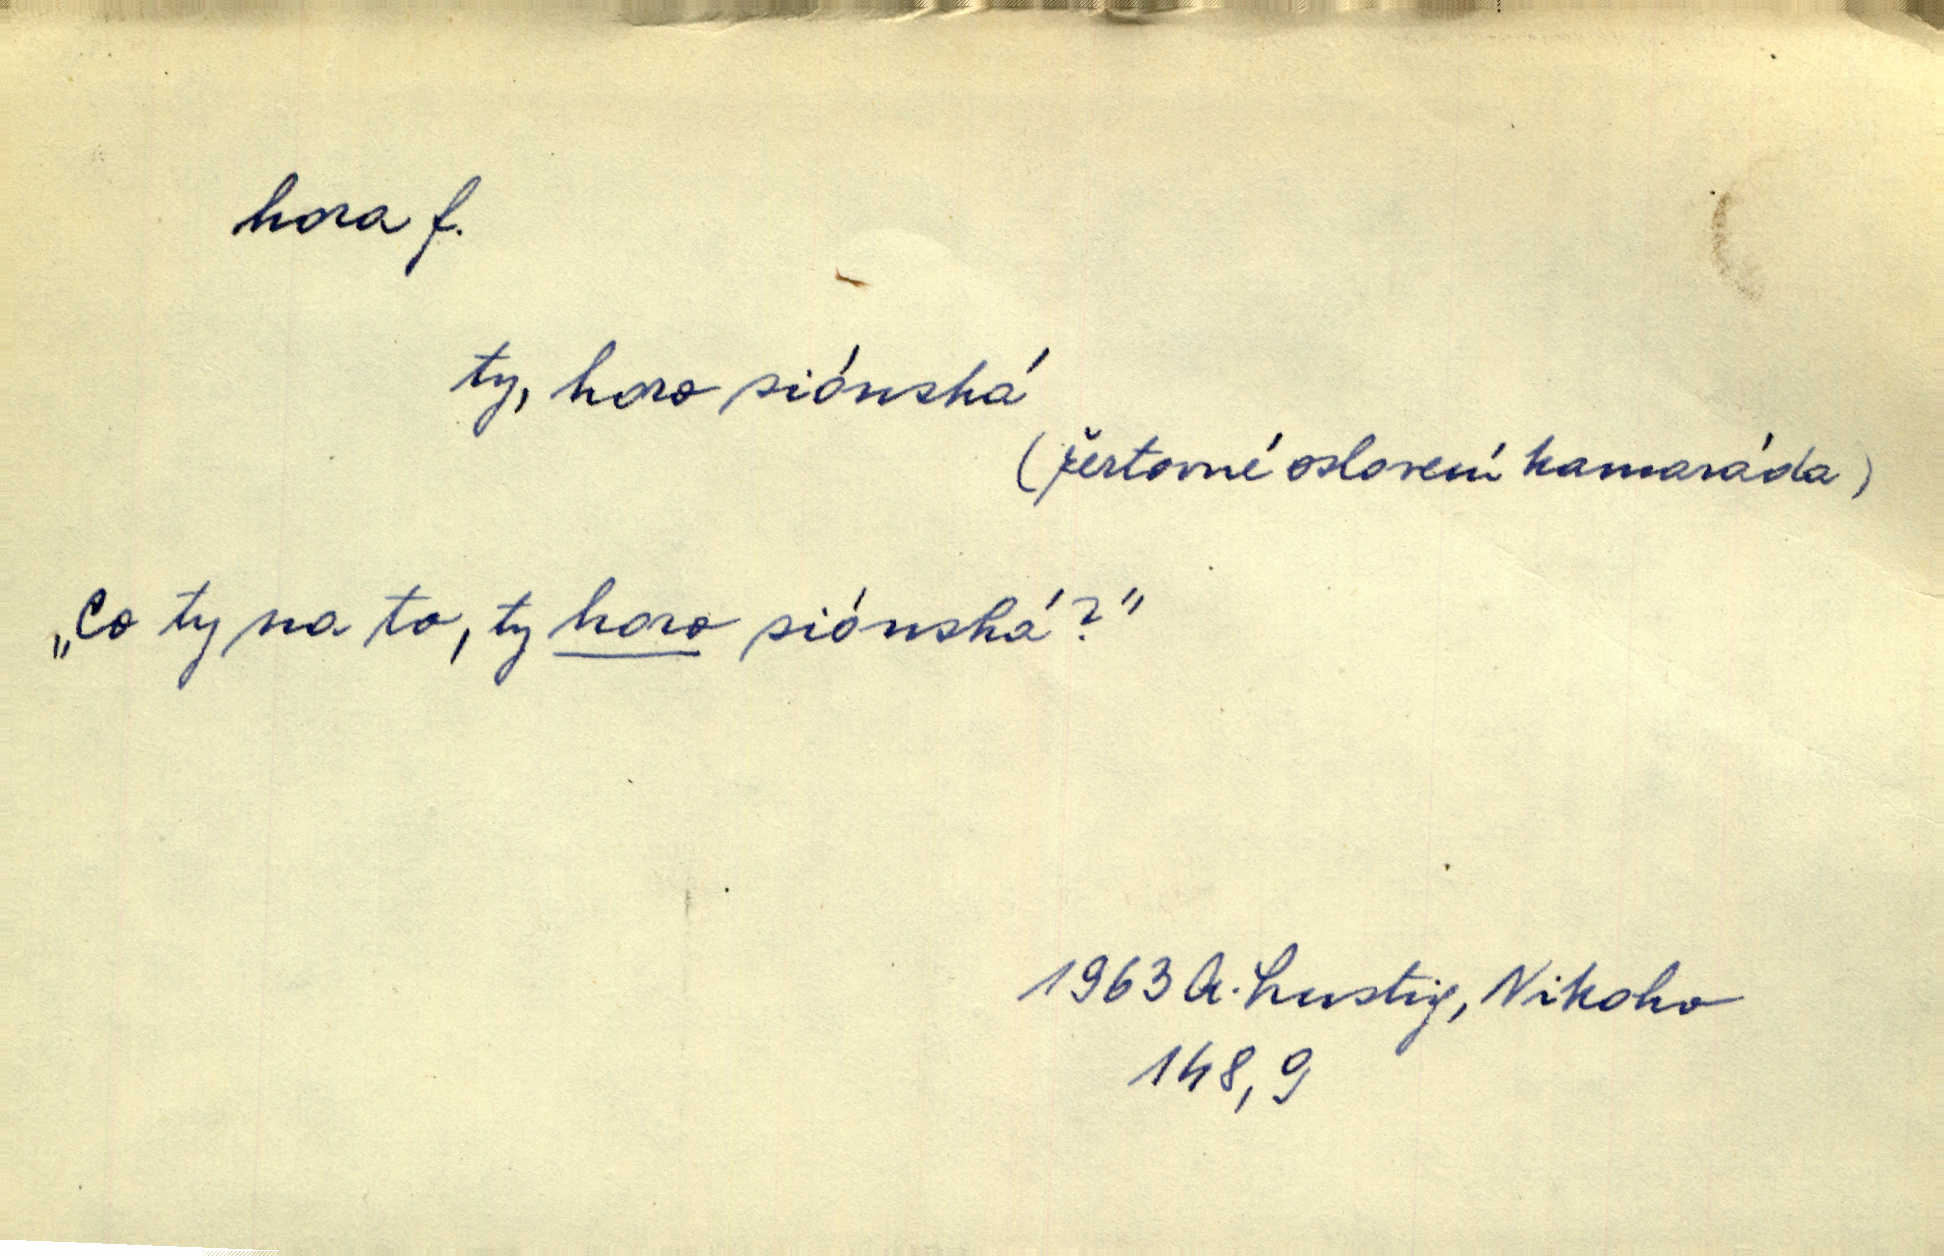 hora f.
ty, horo siónská
(žertovné oslovení kamaráda)
„Co ty na to, ty horo siónská?"
1963 A. Lustig, Nikoho
148,9